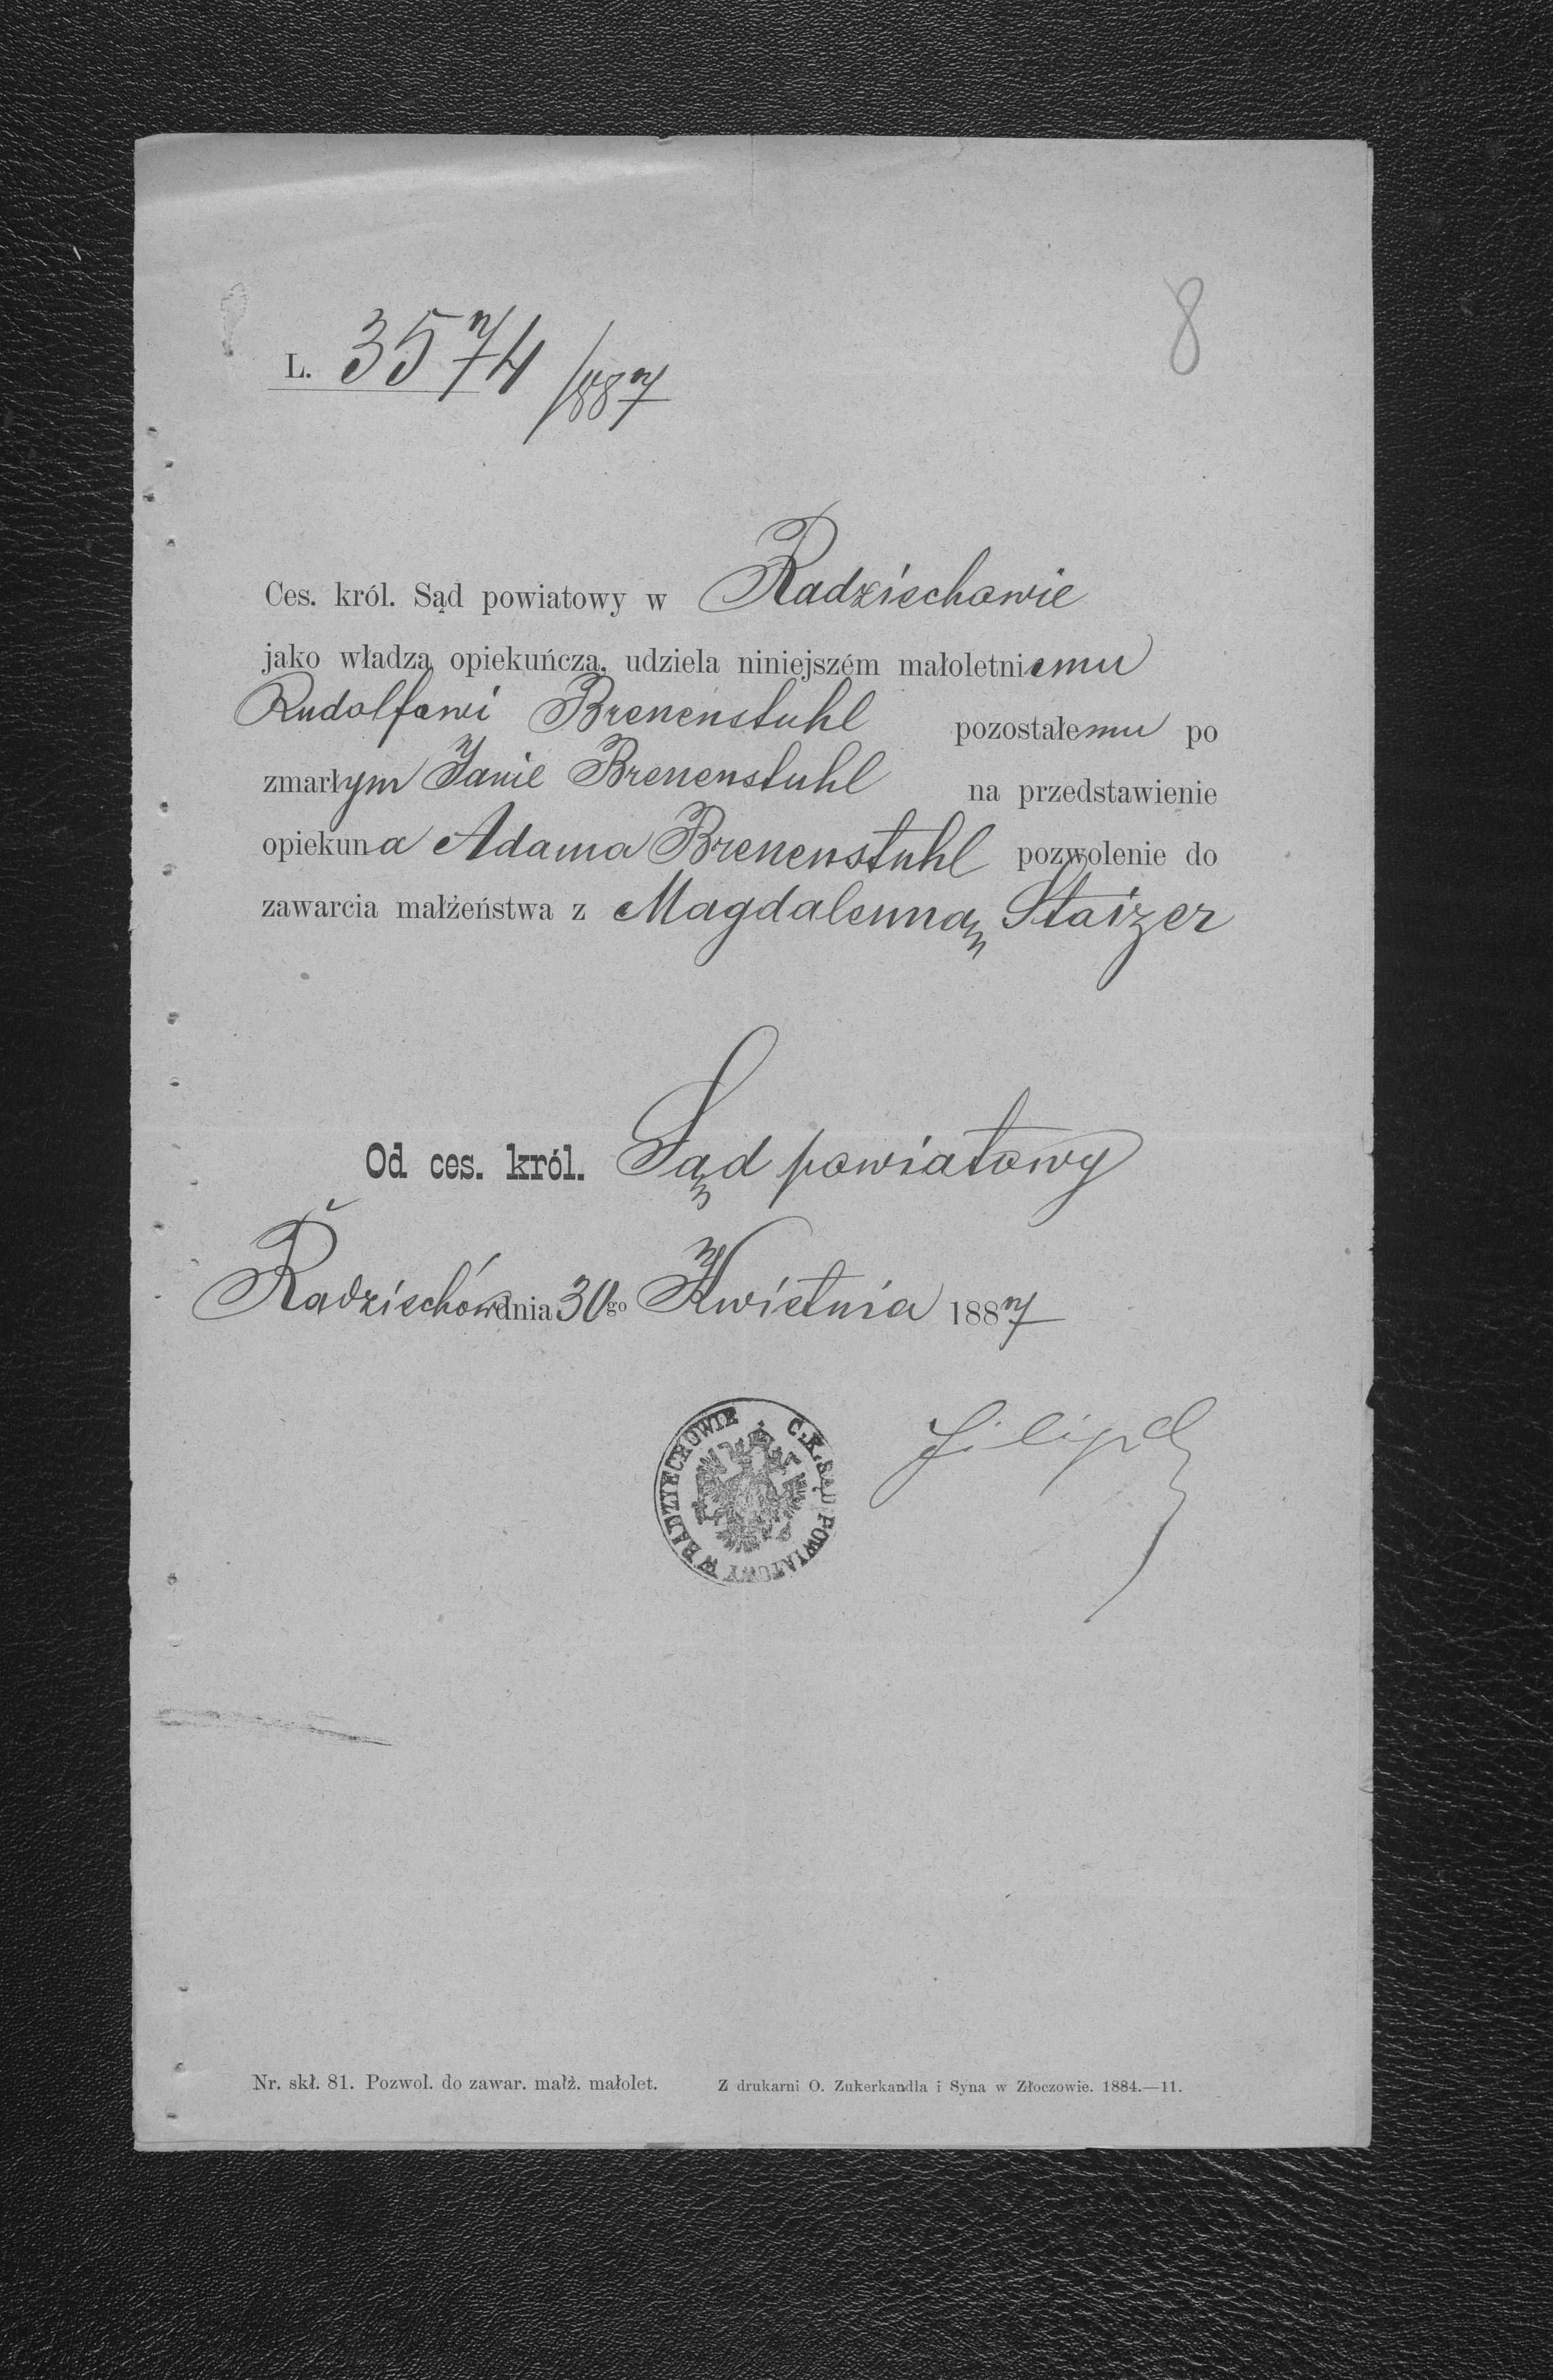 8
L. 3574/1887
Ces. król. Sąd powiatowy w Radziechowie
jako władza opiekuńcza, udziela niniejszém małoletniemu
Rudolfowi Brenenstuhl pozostałemu po
zmarłym Janie Brenenstuhl na przedstawienie
opiekuna Adama Brenenstuhl pozwolenie do
zawarcia małżeństwa z Magdalenną Staizer
Od ces. król. Sąd powiatowy
Radziechów dnia 30go Kwietnia 1887
C. K. SĄD POWIATOWY W RADZIECHOWIE
Nr. skł. 81. Pozwol. do zawar. małż. małolet. Z drukarni O. Zukerkandla i Syna w Złoczowie. 1884.—11.